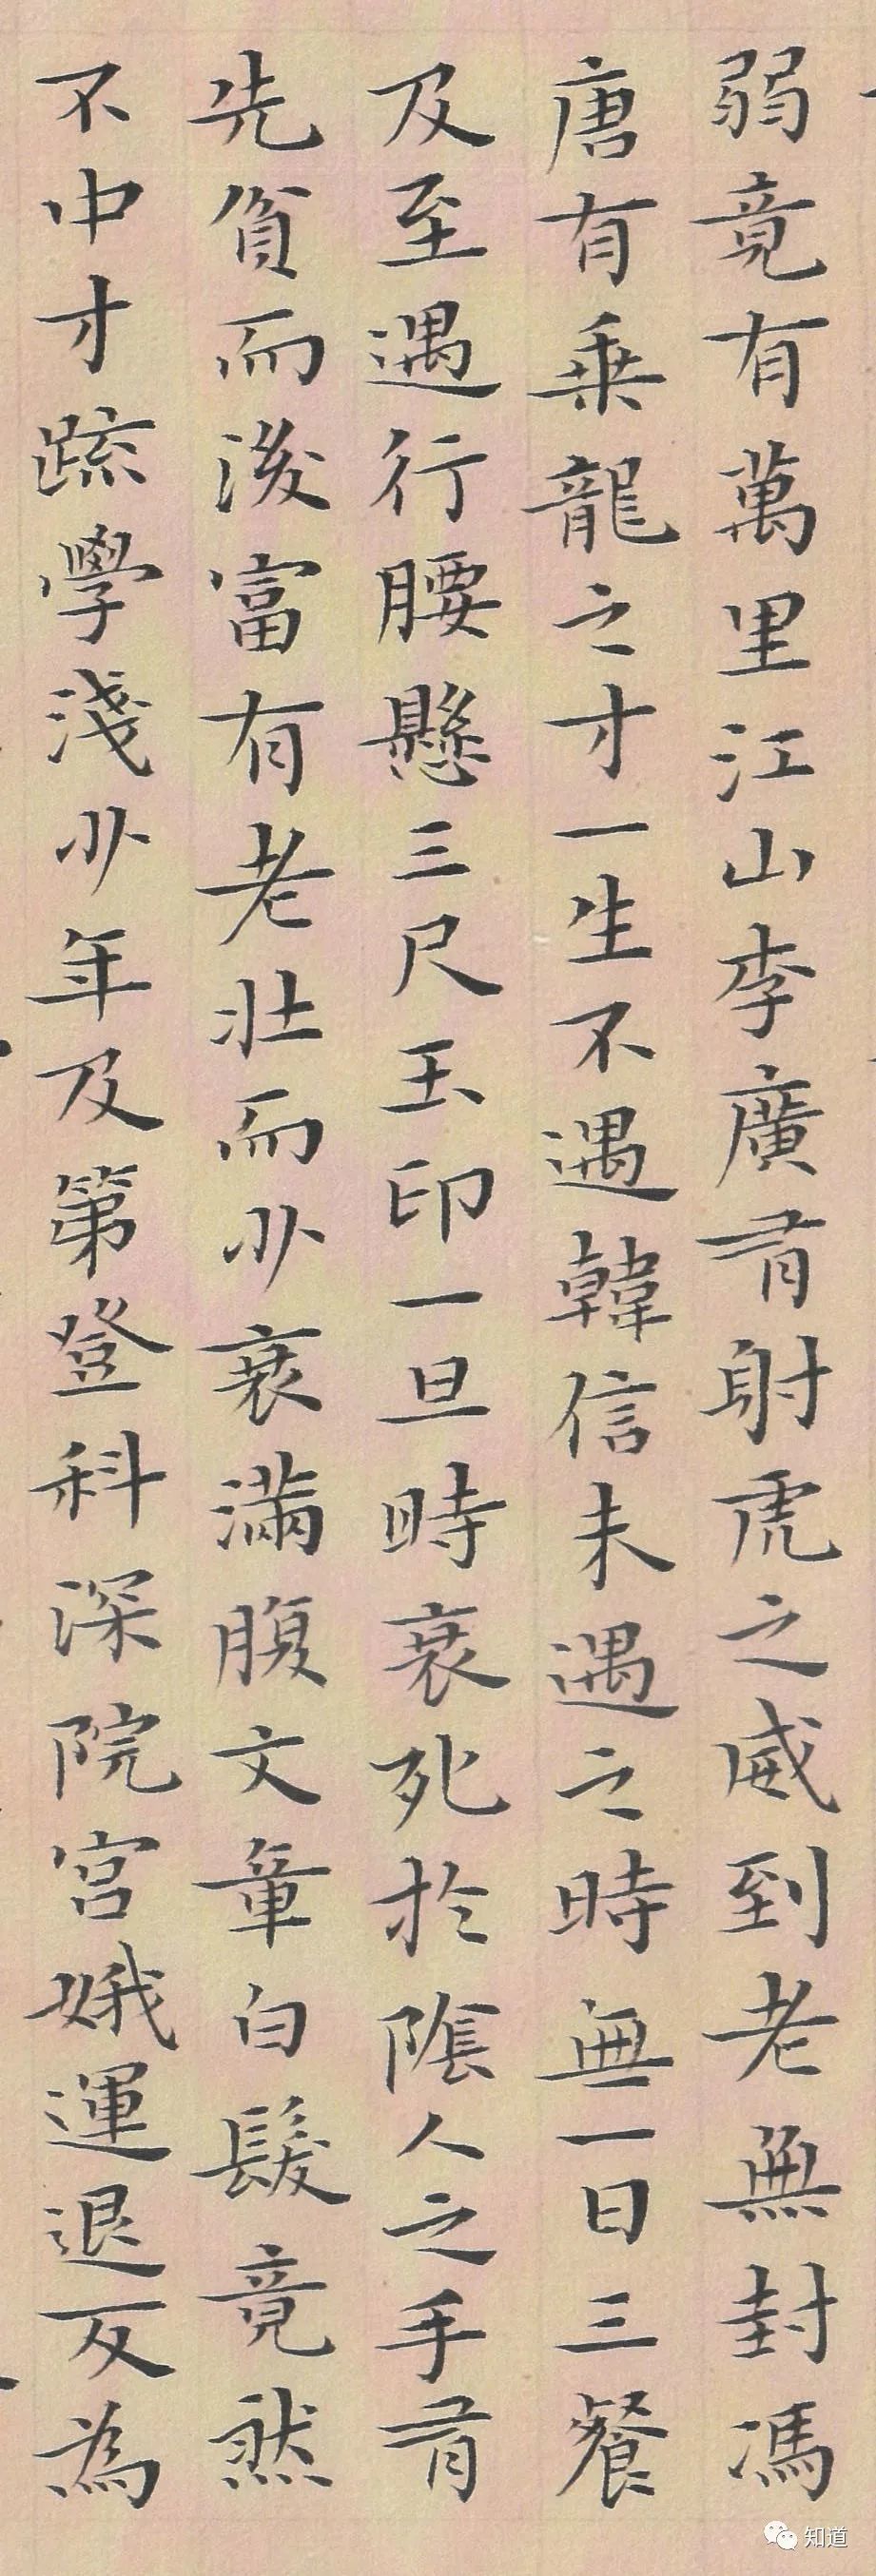 弱竟有萬里江山李廣有射虎之威到老無封馮
唐有乗龍之才一生不遇韓信未遇之時無一日三餐
及至遇行腰懸三尺玉印一旦時衰死於陰人之手有
先貧而後富有老壯而少衰滿腹文章白髮竟然
不中才疏學淺少年及第登科深院宮娥運退反為
知道